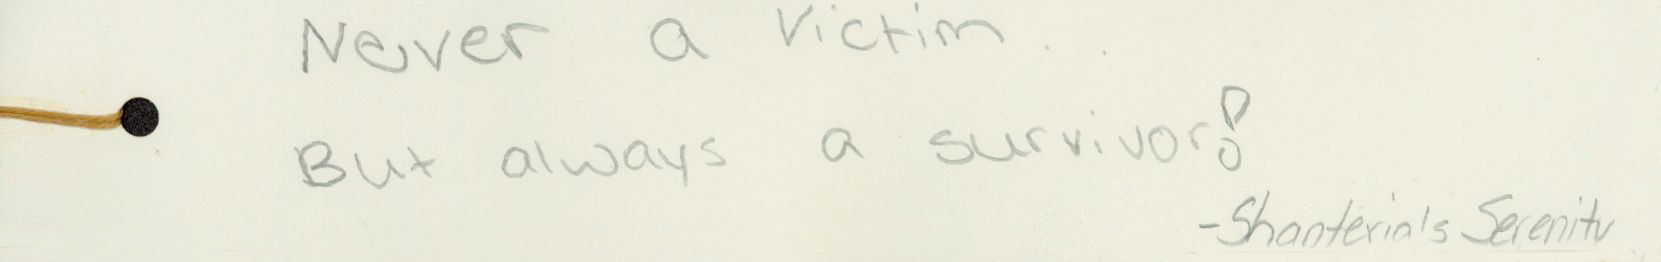 Never a victim . .
But always a survivor!
-Shanteria's Serenity